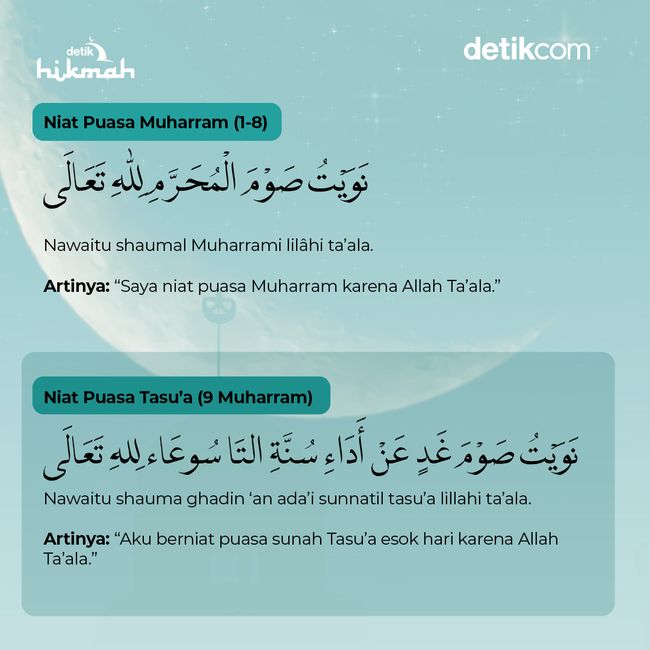 detik
hikmah
detikcom
Niat Puasa Muharram (1-8)
نَوَيْتُ صَوْمَ الْمُحَرَّمِ لِلّٰهِ تَعَالَى
Nawaitu shaumal Muharrami lilâhi ta’ala.
Artinya: “Saya niat puasa Muharram karena Allah Ta’ala.”
Niat Puasa Tasu’a (9 Muharram)
نَوَيْتُ صَوْمَ غَدٍ عَنْ أَدَاءِ سُنَّةِ التَا سُوعَاء لِلهِ تَعَالَى
Nawaitu shauma ghadin ‘an ada’i sunnatil tasu’a lillahi ta’ala.
Artinya: “Aku berniat puasa sunah Tasu’a esok hari karena Allah
Ta’ala.”